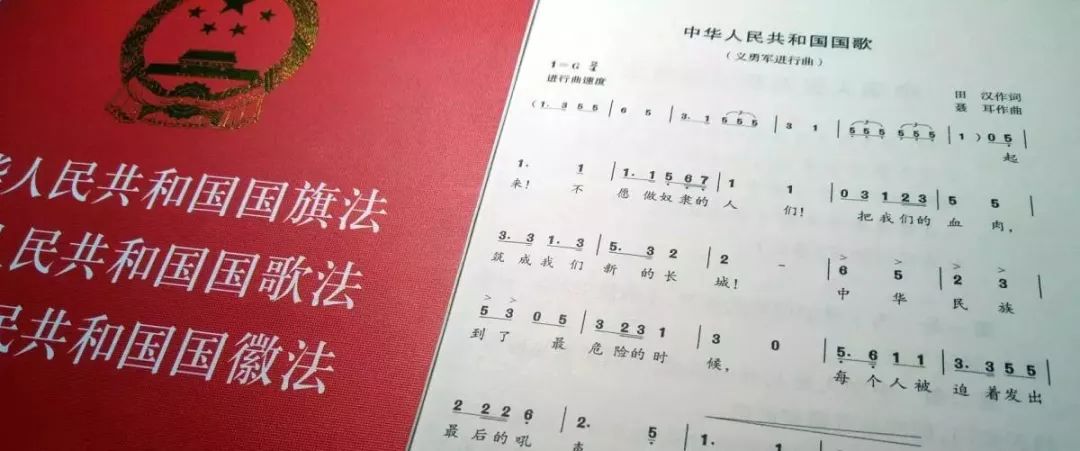 华人民共和国国旗法
人民共和国国歌法
民共和国国徽法
中华人民共和国国歌
（义勇军进行曲）
1=G 2/4
进行曲速度
田 汉作词
聂 耳作曲
(1. 3 5 5 | 6 5 | 3. 1 5 5 5 | 3 1 | 5 5 5 5 5 5 | 1 ) 0 5 |
起
1. 1 | 1. 1 5 6 7 | 1 1 | 0 3 1 2 3 | 5 5 |
来! 不 愿做奴隶的 人 们! 把我们的 血 肉,
3. 3 1. 3 | 5. 3 2 | 2 - | 6 5 | 2 3 |
筑成我们 新的长 城! 中 华 民 族
5 3 0 5 | 3 2 3 1 | 3 0 | 5. 6 1 1 | 3. 3 5 5 |
到了 最 危险的时 候, 每个人被 迫着发出
2 2 2 6 | 2. 5 | 1. 1
最后的吼 声